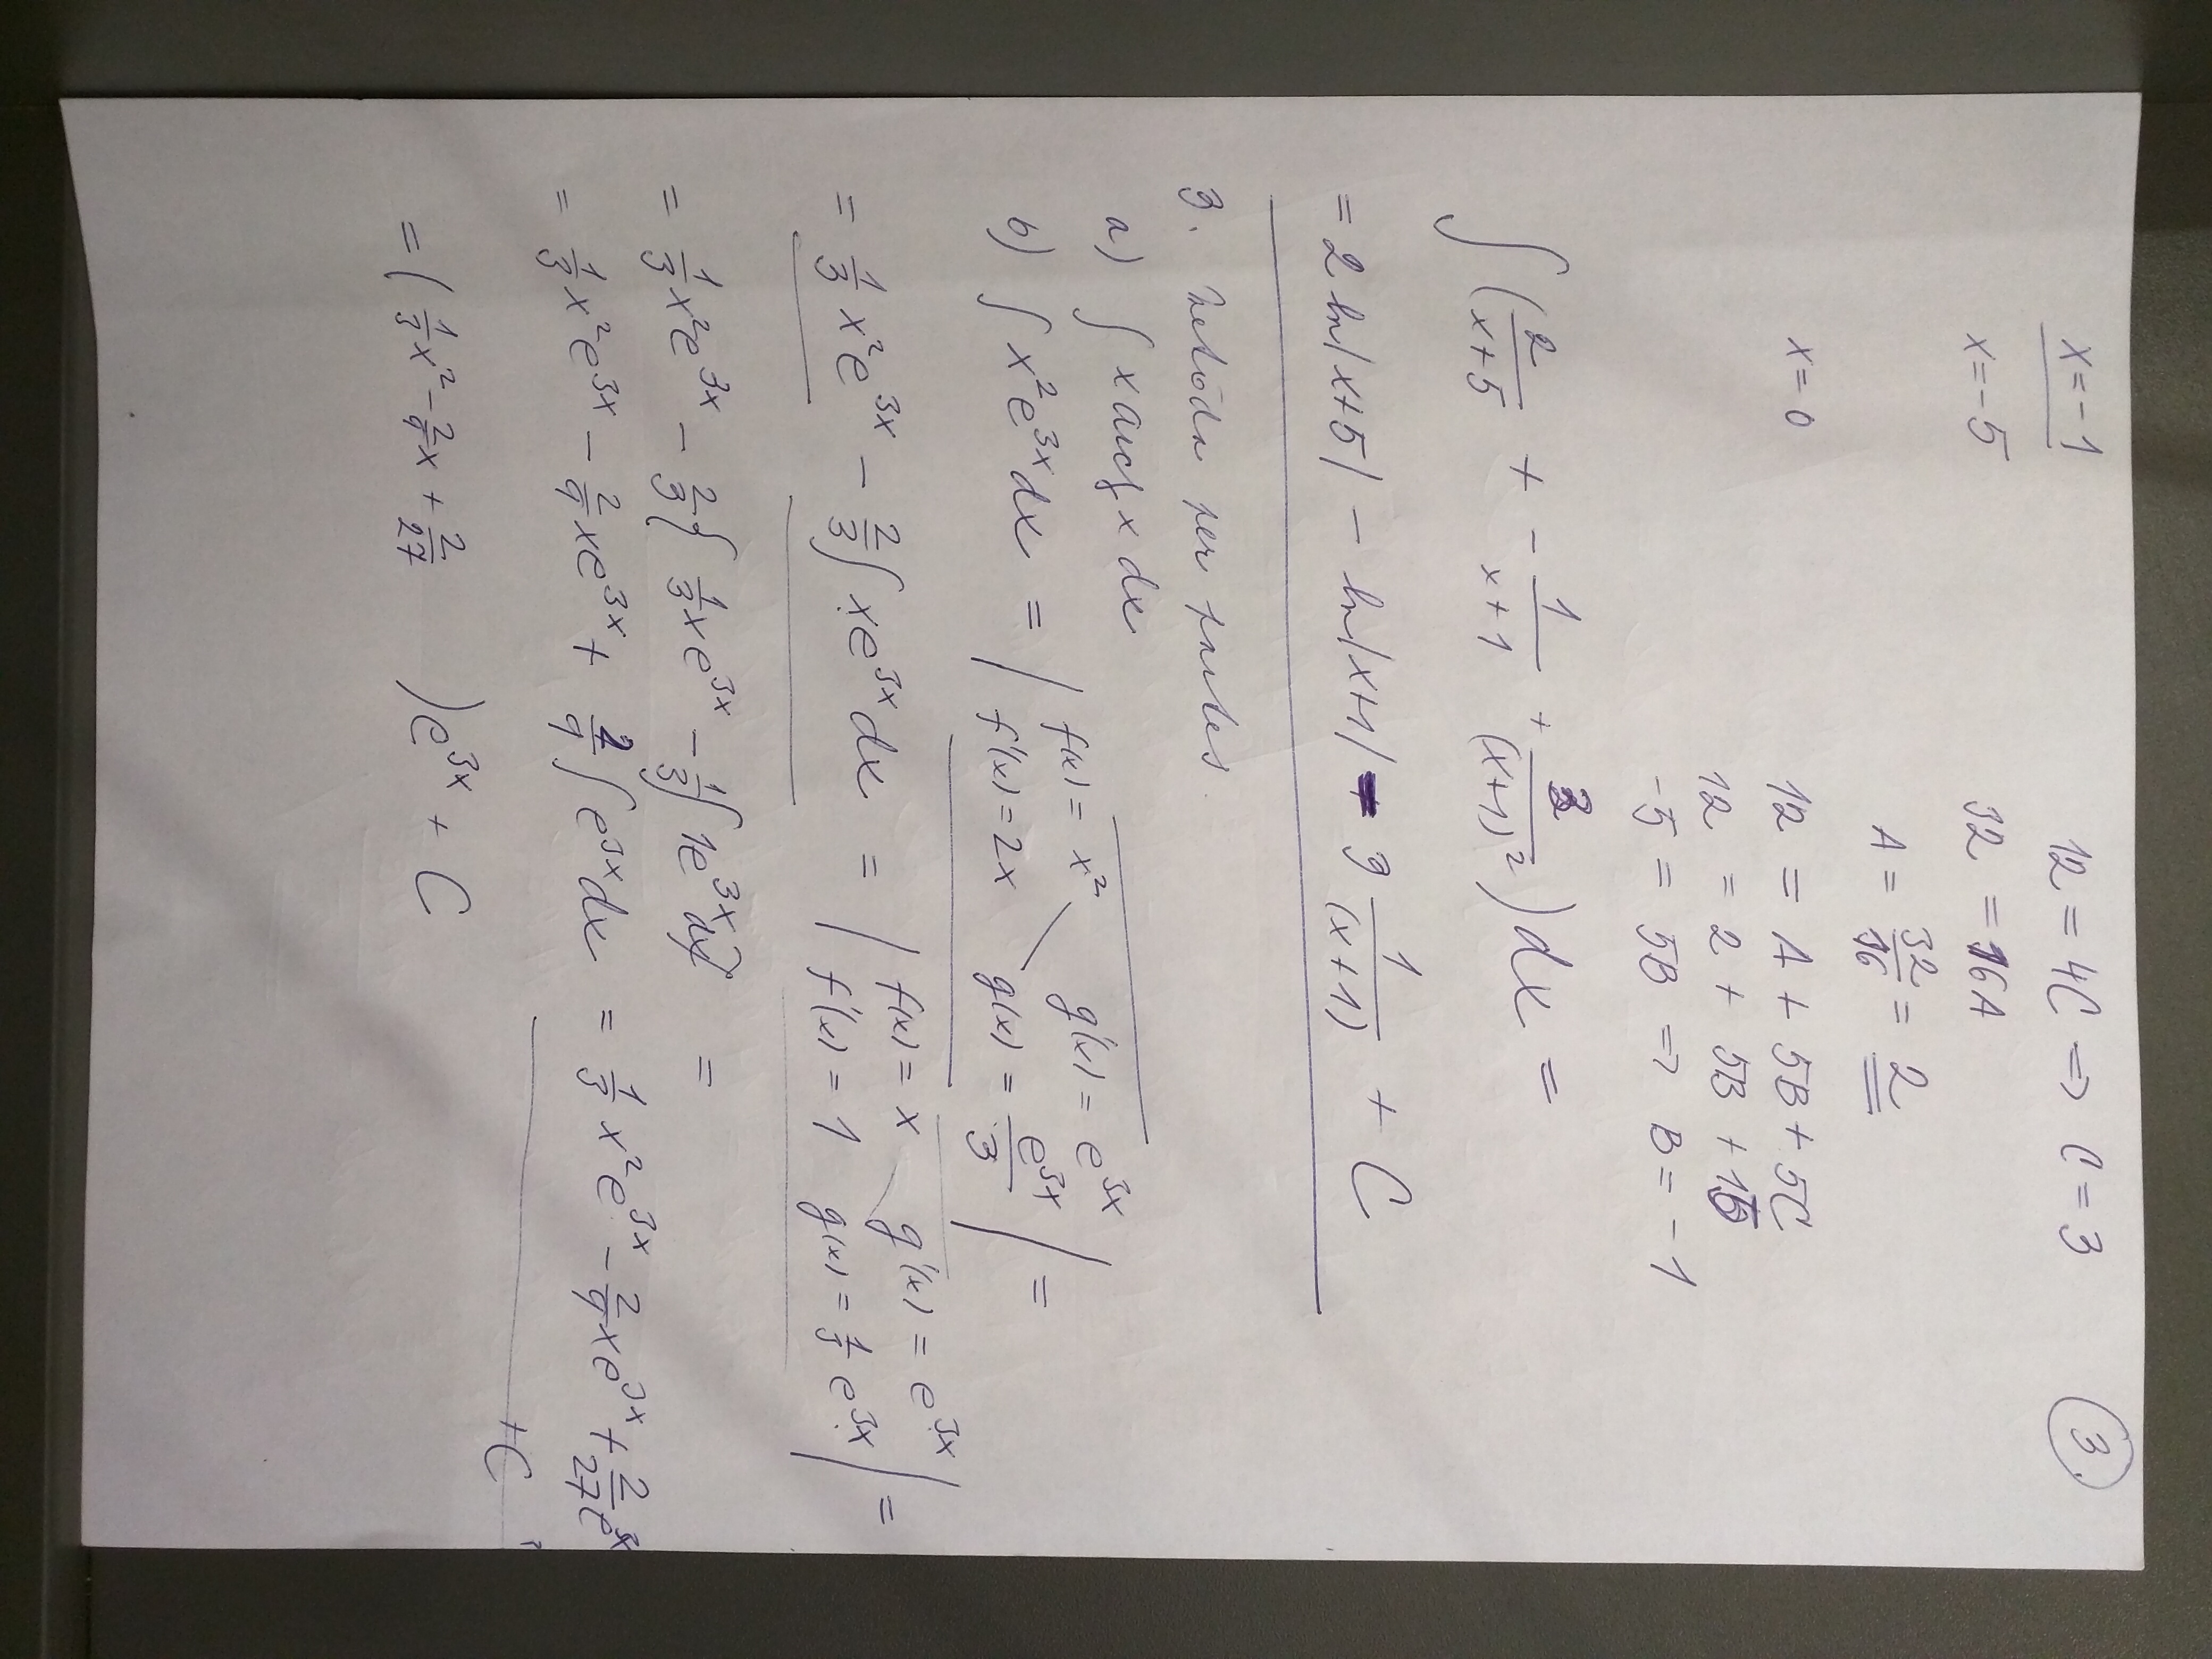 3.
x=-1 12 = 4C => C = 3
x=-5 32 = 16A
A = 32/16 = 2
x=0 12 = A + 5B + 5C
12 = 2 + 5B + 15
-5 = 5B => B = -1
∫ (2/(x+5) + -1/(x+1) + 3/(x+1)²) dx =
= 2 ln|x+5| - ln|x+1| - 3 1/(x+1) + C
3. Metóda per partes
a) ∫ x arctg x dx
b) ∫ x²e^(3x) dx = | f(x) = x² g'(x) = e^(3x) f'(x) = 2x g(x) = e^(3x)/3 | =
= 1/3 x²e^(3x) - 2/3 ∫ xe^(3x) dx = | f(x) = x g'(x) = e^(3x) f'(x) = 1 g(x) = 1/3 e^(3x) | =
= 1/3 x²e^(3x) - 2/3 { 1/3 xe^(3x) - 1/3 ∫ 1e^(3x) dx } =
= 1/3 x²e^(3x) - 2/9 xe^(3x) + 2/9 ∫ e^(3x) dx = 1/3 x²e^(3x) - 2/9 xe^(3x) + 2/27 e^(3x)
+ C
= ( 1/3 x² - 2/9 x + 2/27 ) e^(3x) + C